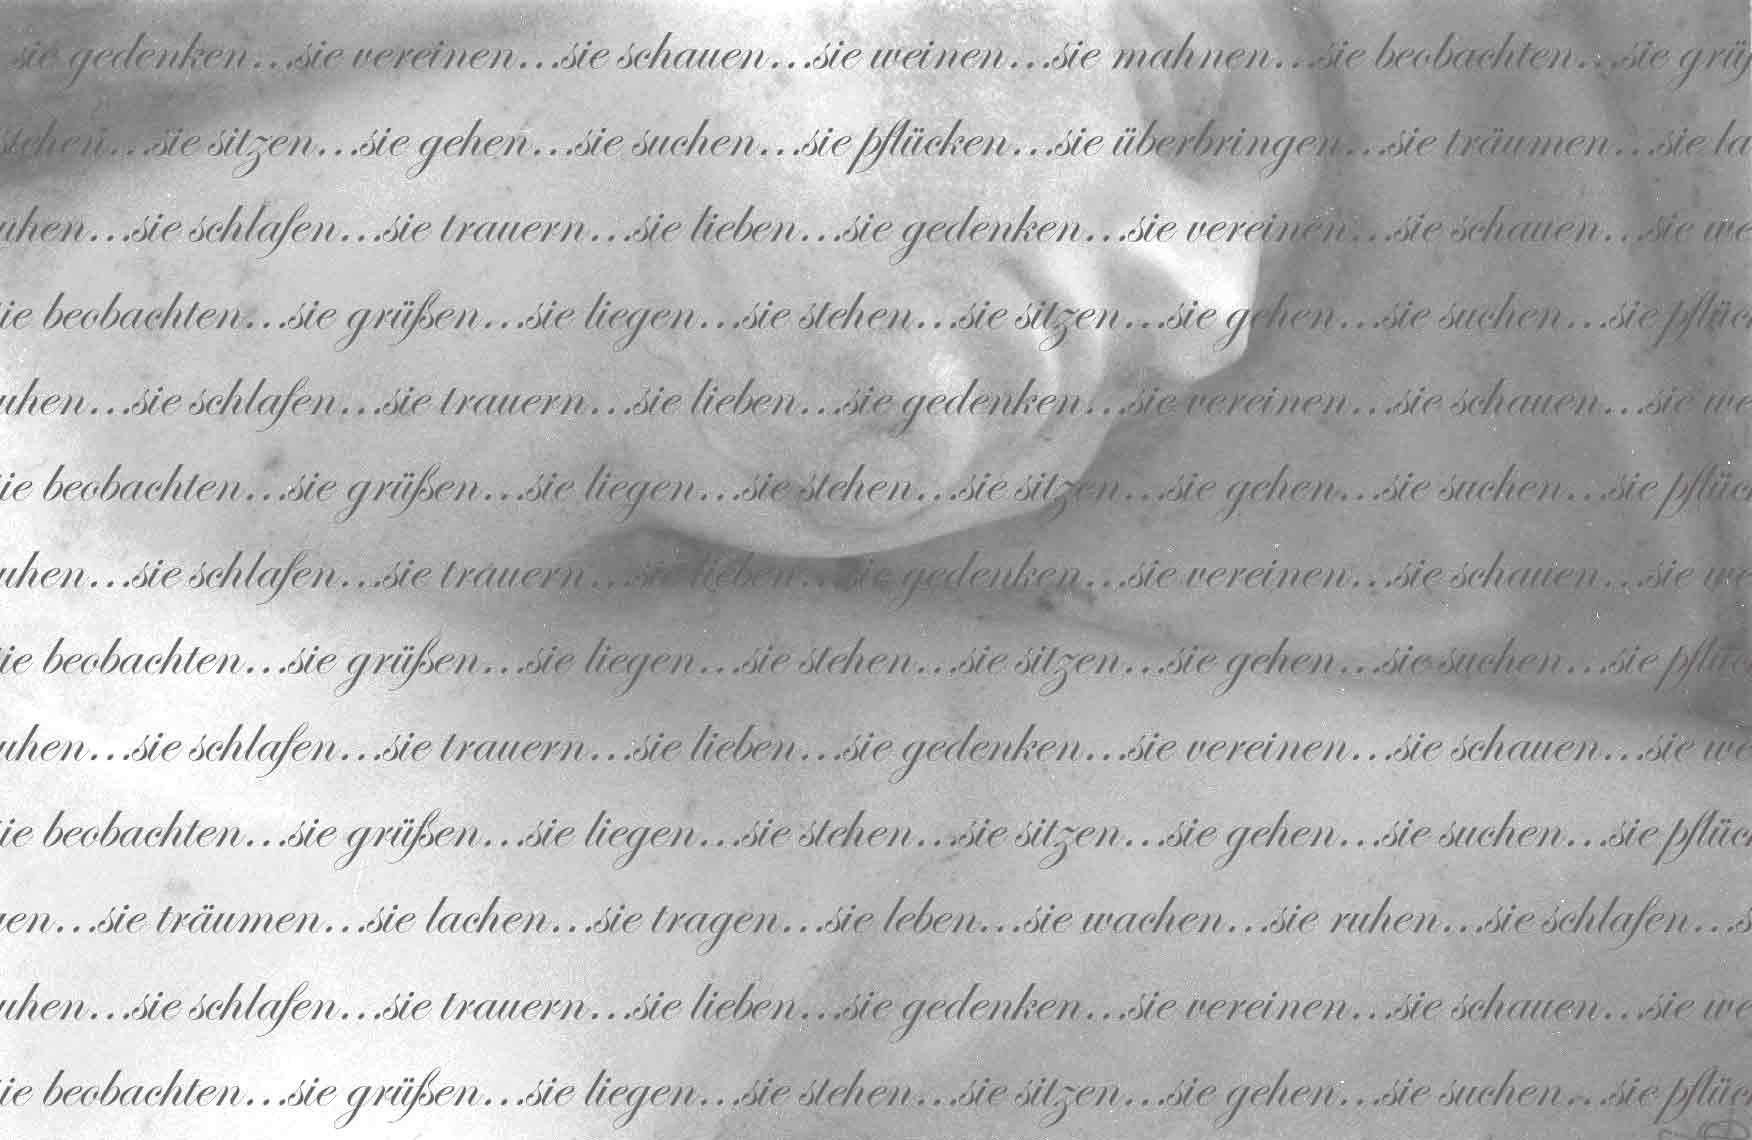 sie gedenken...sie vereinen...sie schauen...sie weinen...sie mahnen...sie beobachten...sie grüß
stehen...sie sitzen...sie gehen...sie suchen...sie pflücken...sie überbringen...sie träumen...sie la
uhen...sie schlafen...sie trauern...sie lieben...sie gedenken...sie vereinen...sie schauen...sie we
ie beobachten...sie grüßen...sie liegen...sie stehen...sie sitzen...sie gehen...sie suchen...sie pflück
uhen...sie schlafen...sie trauern...sie lieben...sie gedenken...sie vereinen...sie schauen...sie we
ie beobachten...sie grüßen...sie liegen...sie stehen...sie sitzen...sie gehen...sie suchen...sie pflück
uhen...sie schlafen...sie trauern...sie lieben...sie gedenken...sie vereinen...sie schauen...sie we
ie beobachten...sie grüßen...sie liegen...sie stehen...sie sitzen...sie gehen...sie suchen...sie pflück
uhen...sie schlafen...sie trauern...sie lieben...sie gedenken...sie vereinen...sie schauen...sie we
ie beobachten...sie grüßen...sie liegen...sie stehen...sie sitzen...sie gehen...sie suchen...sie pflück
en...sie träumen...sie lachen...sie tragen...sie leben...sie wachen...sie ruhen...sie schlafen...s
uhen...sie schlafen...sie trauern...sie lieben...sie gedenken...sie vereinen...sie schauen...sie we
ie beobachten...sie grüßen...sie liegen...sie stehen...sie sitzen...sie gehen...sie suchen...sie pflück